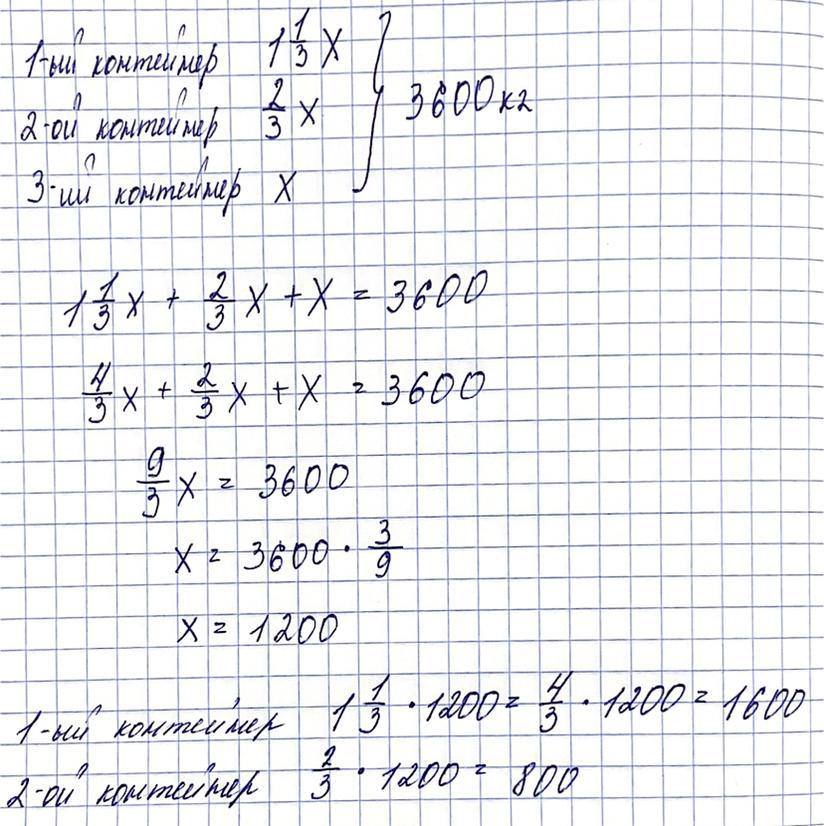 1-ый контейнер 1 1/3 x
2-ой контейнер 2/3 x } 3600 кг
3-ий контейнер x
1 1/3 x + 2/3 x + x = 3600
4/3 x + 2/3 x + x = 3600
9/3 x = 3600
x = 3600 · 3/9
x = 1200
1-ый контейнер 1 1/3 · 1200 = 4/3 · 1200 = 1600
2-ой контейнер 2/3 · 1200 = 800